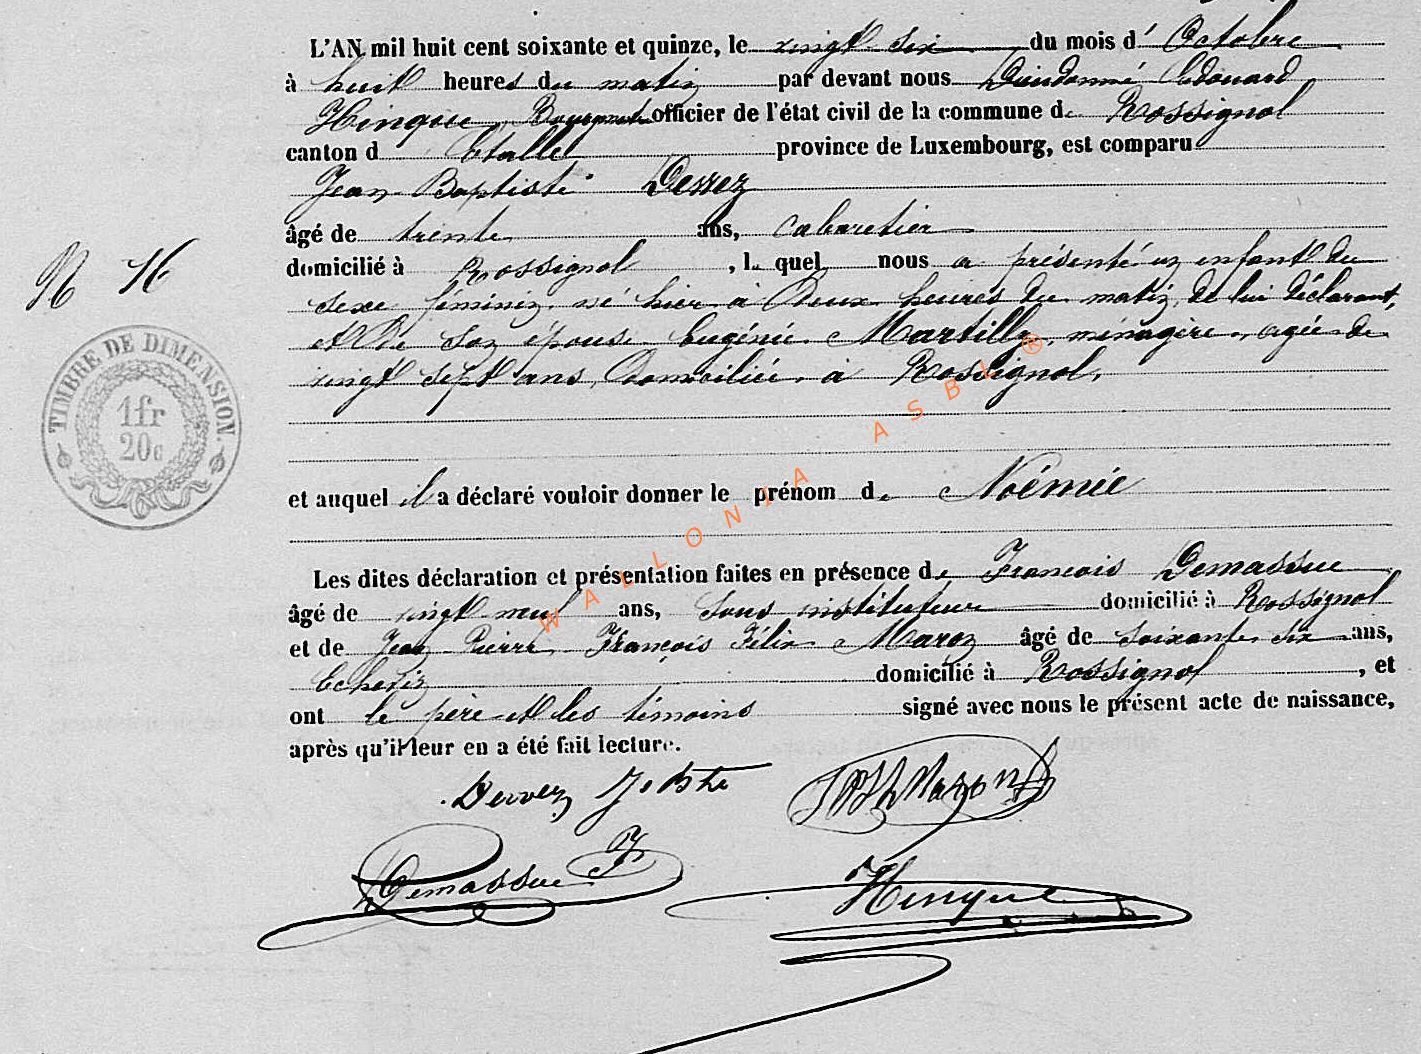 L'AN mil huit cent soixante et quinze, le vingt six du mois d' Octobre
à huit heures du matin par devant nous Dieudonné Edouard
Hinque, Bourgmestre officier de l'état civil de la commune de Rossignol
canton d Etalle province de Luxembourg, est comparu
Jean Baptiste
âgé de trente ans, cabaretier
domicilié à Rossignol, lequel nous a présenté un enfant du
sexe féminin, né hier à Deux heures du matin, de lui déclarant,
et de son épouse Eugénie Martilly, ménagère, agée de
vingt sept ans, Domiciliée à Rossignol,
N 16
TIMBRE DE DIMENSION.
1fr
20c
et auquel il a déclaré vouloir donner le prénom de Noémie
Les dites déclaration et présentation faites en présence de François Demassue
âgé de vingt neuf ans, sous instituteur domicilié à Rossignol
et de Jean Pierre François Félix Maron âgé de soixante six ans,
Echevin domicilié à Rossignol, et
ont le père et les témoins signé avec nous le présent acte de naissance,
après qu'il leur en a été fait lecture.
J. Bte Maron
Demassue F
Hinque
WALLONIA ASBL ®